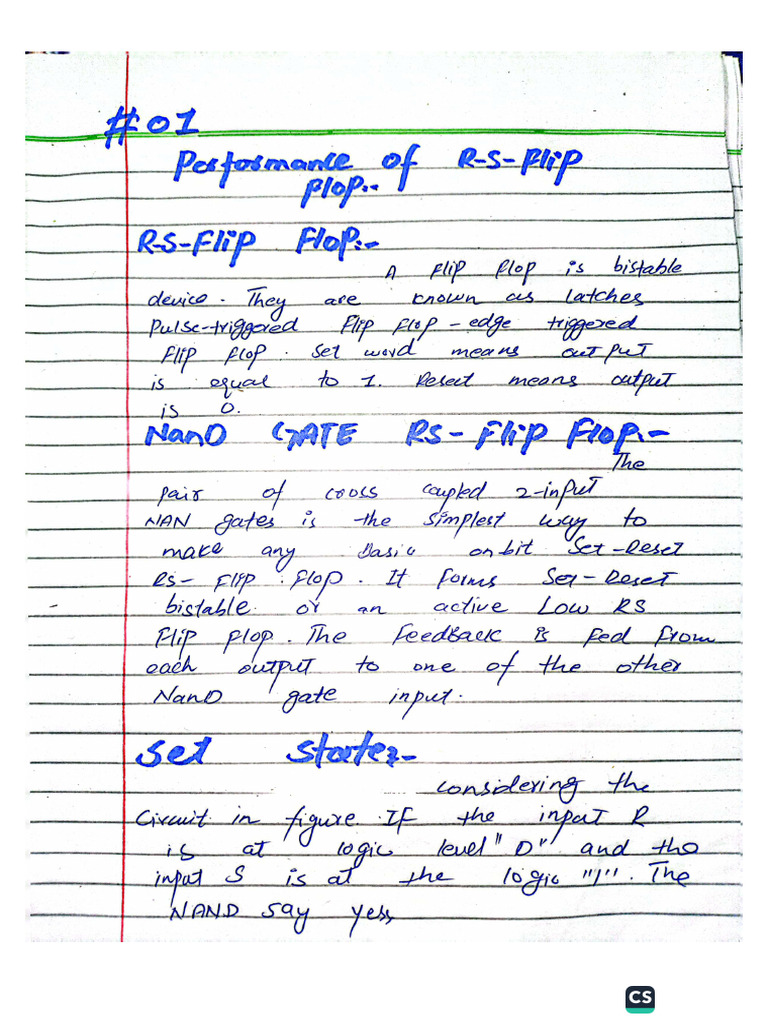 #01
Performance of R-S-Flip
Flop:-
R-S-Flip Flop:-
A flip flop is bistable
device. They are known as latches
Pulse-triggered flip flop - edge triggered
flip flop. Set word means output
is equal to 1. Reset means output
is 0.
NanD GATE RS- Flip Flop:-
The
pair of cross coupled 2-input
NAN gates is the simplest way to
make any Basic onbit Set-Reset
Rs- Flip Flop. It forms Set-Reset
bistable or an active Low RS
Flip flop. The FeedBack is fed from
each output to one of the other
NanD gate input.
Set State:-
considering the
Circuit in figure IF the input R
is at logic level "0" and the
input S is at the logic "1". The
NAND say yes,
CS